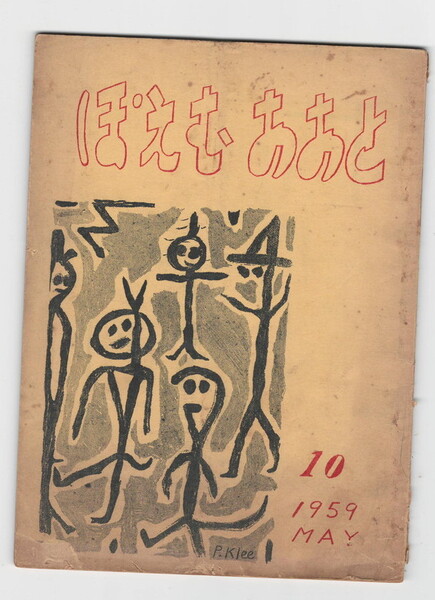 ぽえむ ああと
10
1959
MAY
P. Klee